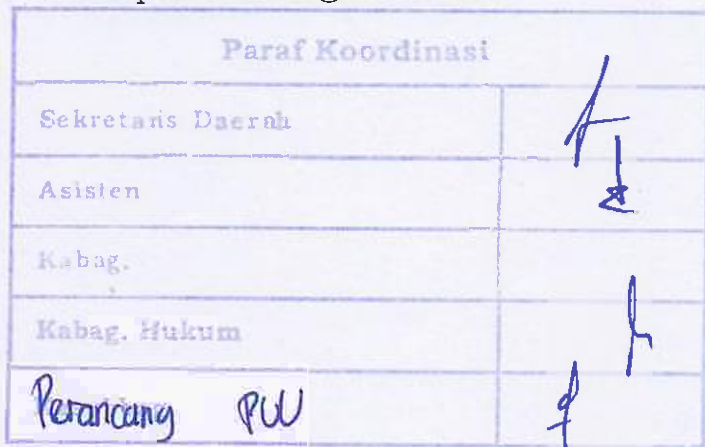 Paraf Koordinasi
Sekretaris Daerah
Asisten
Kabag.
Kabag. Hukum
Perancang PUU